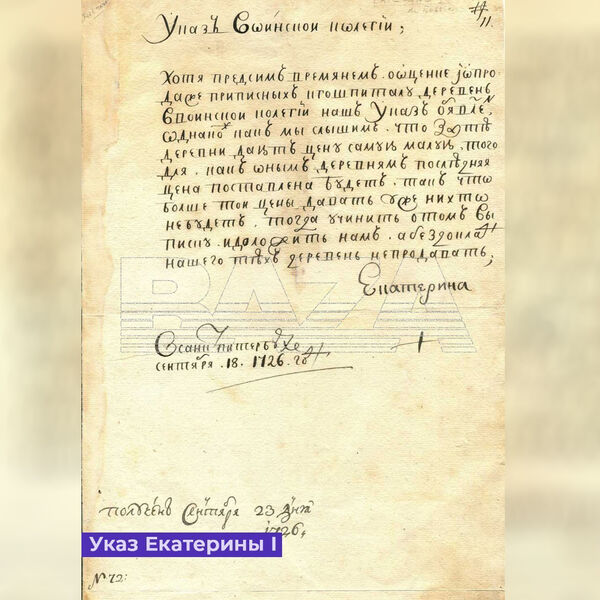 11
Указъ Своинскои колегїи;
Хотя предсимъ времянемъ. оѡцение їѡпро
даже приписных кгошпиталу деревень
Своинскои колегїи нашъ Указъ
ѡднако какъ мы слышимъ. что затѣ
деревни даютъ цену самую малую. того
для. какъ ѡнымъ деревнямъ последняя
цена поставлена будетъ. такъ что
болше тои цены давать уже нихто
небудетъ. тогда учинить отомъ вы
писку. идоложить намъ. абездокла
нашего тѣхъ деревень непродавать;
Екатерина
BAZA
Всанктъпитербурхе
сентября. 18. 1726. го
получен Сентября 23 дня
1726,
Указ Екатерины I
№ 72: